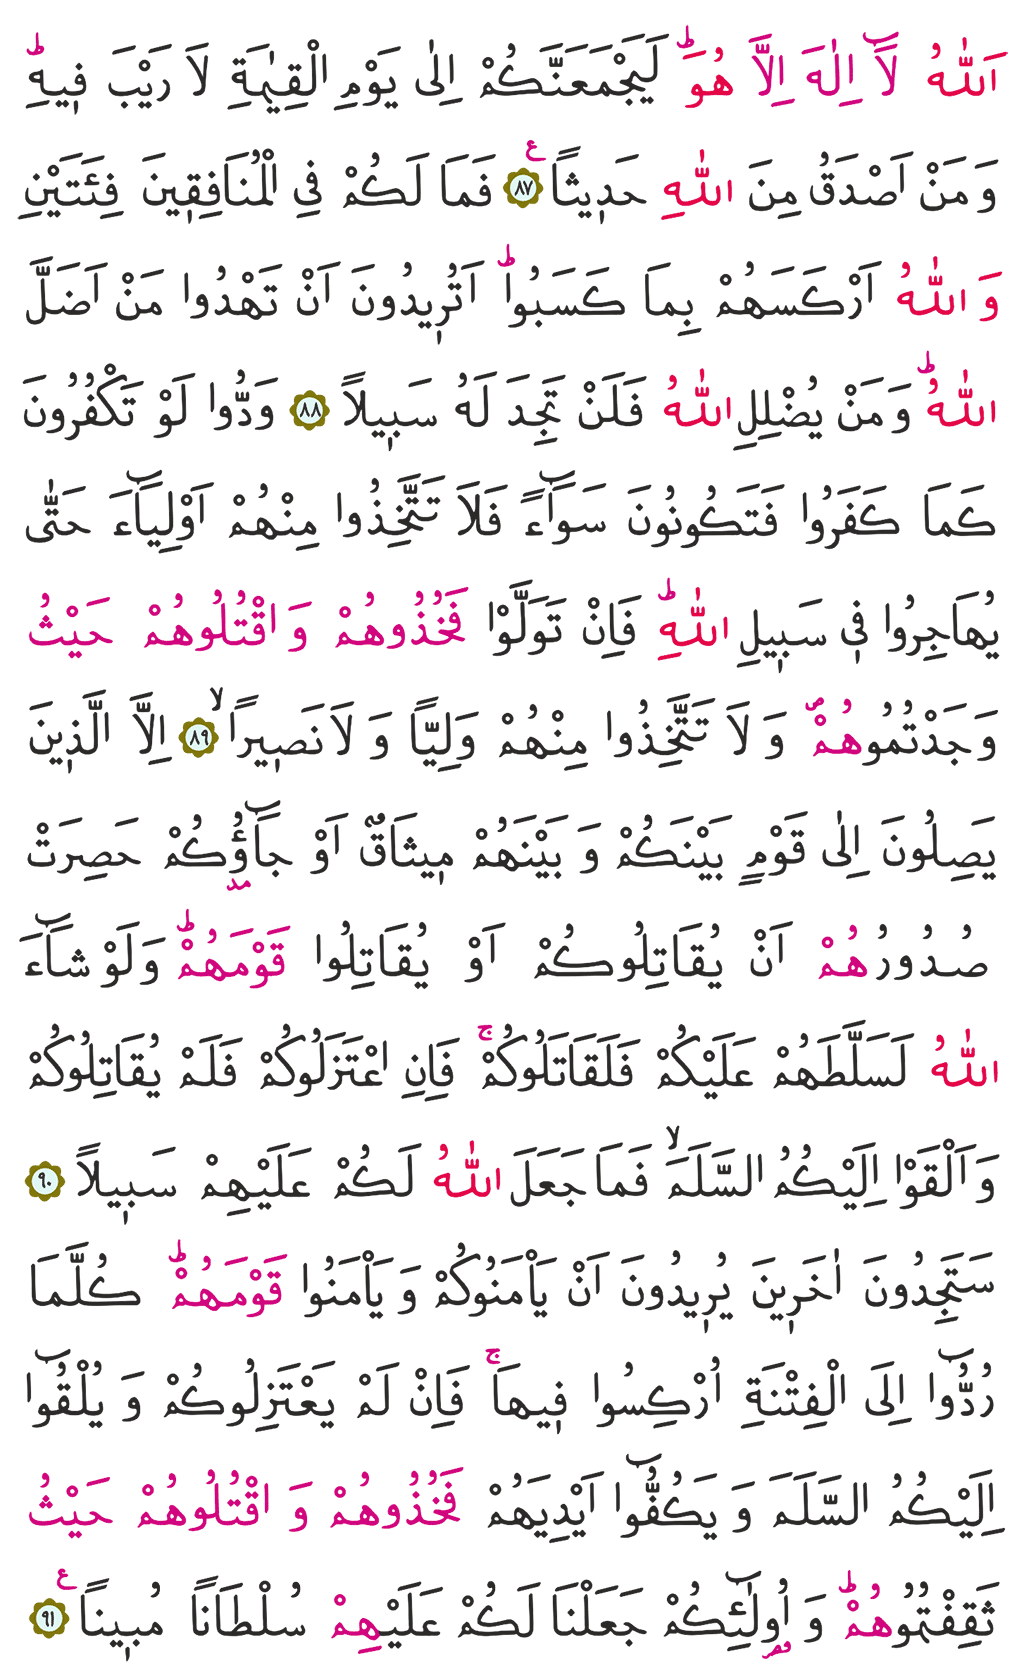 اَللّٰهُ لَٓا اِلٰهَ اِلَّا هُوَۜ لَيَجْمَعَنَّكُمْ اِلٰى يَوْمِ الْقِيٰمَةِ لَا رَيْبَ ف۪يهِۜ
وَمَنْ اَصْدَقُ مِنَ اللّٰهِ حَد۪يثًا۟ ﴿٨٧﴾ فَمَا لَكُمْ فِي الْمُنَافِق۪ينَ فِئَتَيْنِ
وَاللّٰهُ اَرْكَسَهُمْ بِمَا كَسَبُواۜ اَتُر۪يدُونَ اَنْ تَهْدُوا مَنْ اَضَلَّ
اللّٰهُۜ وَمَنْ يُضْلِلِ اللّٰهُ فَلَنْ تَجِدَ لَهُ سَب۪يلًا ﴿٨٨﴾ وَدُّوا لَوْ تَكْفُرُونَ
كَمَا كَفَرُوا فَتَكُونُونَ سَوَٓاءً فَلَا تَتَّخِذُوا مِنْهُمْ اَوْلِيَٓاءَ حَتّٰى
يُهَاجِرُوا ف۪ي سَب۪يلِ اللّٰهِۜ فَاِنْ تَوَلَّوْا فَخُذُوهُمْ وَاقْتُلُوهُمْ حَيْثُ
وَجَدْتُمُوهُمْۖ وَلَا تَتَّخِذُوا مِنْهُمْ وَلِيًّا وَلَا نَص۪يرًاۙ ﴿٨٩﴾ اِلَّا الَّذ۪ينَ
يَصِلُونَ اِلٰى قَوْمٍ بَيْنَكُمْ وَبَيْنَهُمْ م۪يثَاقٌ اَوْ جَٓاؤُ۫كُمْ حَصِرَتْ
صُدُورُهُمْ اَنْ يُقَاتِلُوكُمْ اَوْ يُقَاتِلُوا قَوْمَهُمْۜ وَلَوْ شَٓاءَ
اللّٰهُ لَسَلَّطَهُمْ عَلَيْكُمْ فَلَقَاتَلُوكُمْۚ فَاِنِ اعْتَزَلُوكُمْ فَلَمْ يُقَاتِلُوكُمْ
وَاَلْقَوْا اِلَيْكُمُ السَّلَمَۙ فَمَا جَعَلَ اللّٰهُ لَكُمْ عَلَيْهِمْ سَب۪يلًا ﴿٩٠﴾
سَتَجِدُونَ اٰخَر۪ينَ يُر۪يدُونَ اَنْ يَأْمَنُوكُمْ وَيَأْمَنُوا قَوْمَهُمْۜ كُلَّمَا
رُدُّٓوا اِلَى الْفِتْنَةِ اُرْكِسُوا ف۪يهَاۚ فَاِنْ لَمْ يَعْتَزِلُوكُمْ وَيُلْقُٓوا
اِلَيْكُمُ السَّلَمَ وَيَكُفُّٓوا اَيْدِيَهُمْ فَخُذُوهُمْ وَاقْتُلُوهُمْ حَيْثُ
ثَقِفْتُمُوهُمْۜ وَاُو۬لٰٓئِكُمْ جَعَلْنَا لَكُمْ عَلَيْهِمْ سُلْطَانًا مُب۪ينًا۟ ﴿٩١﴾